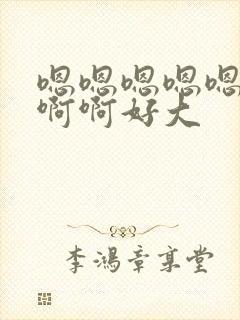 嗯嗯嗯嗯嗯
啊啊好大
李鸿章享堂